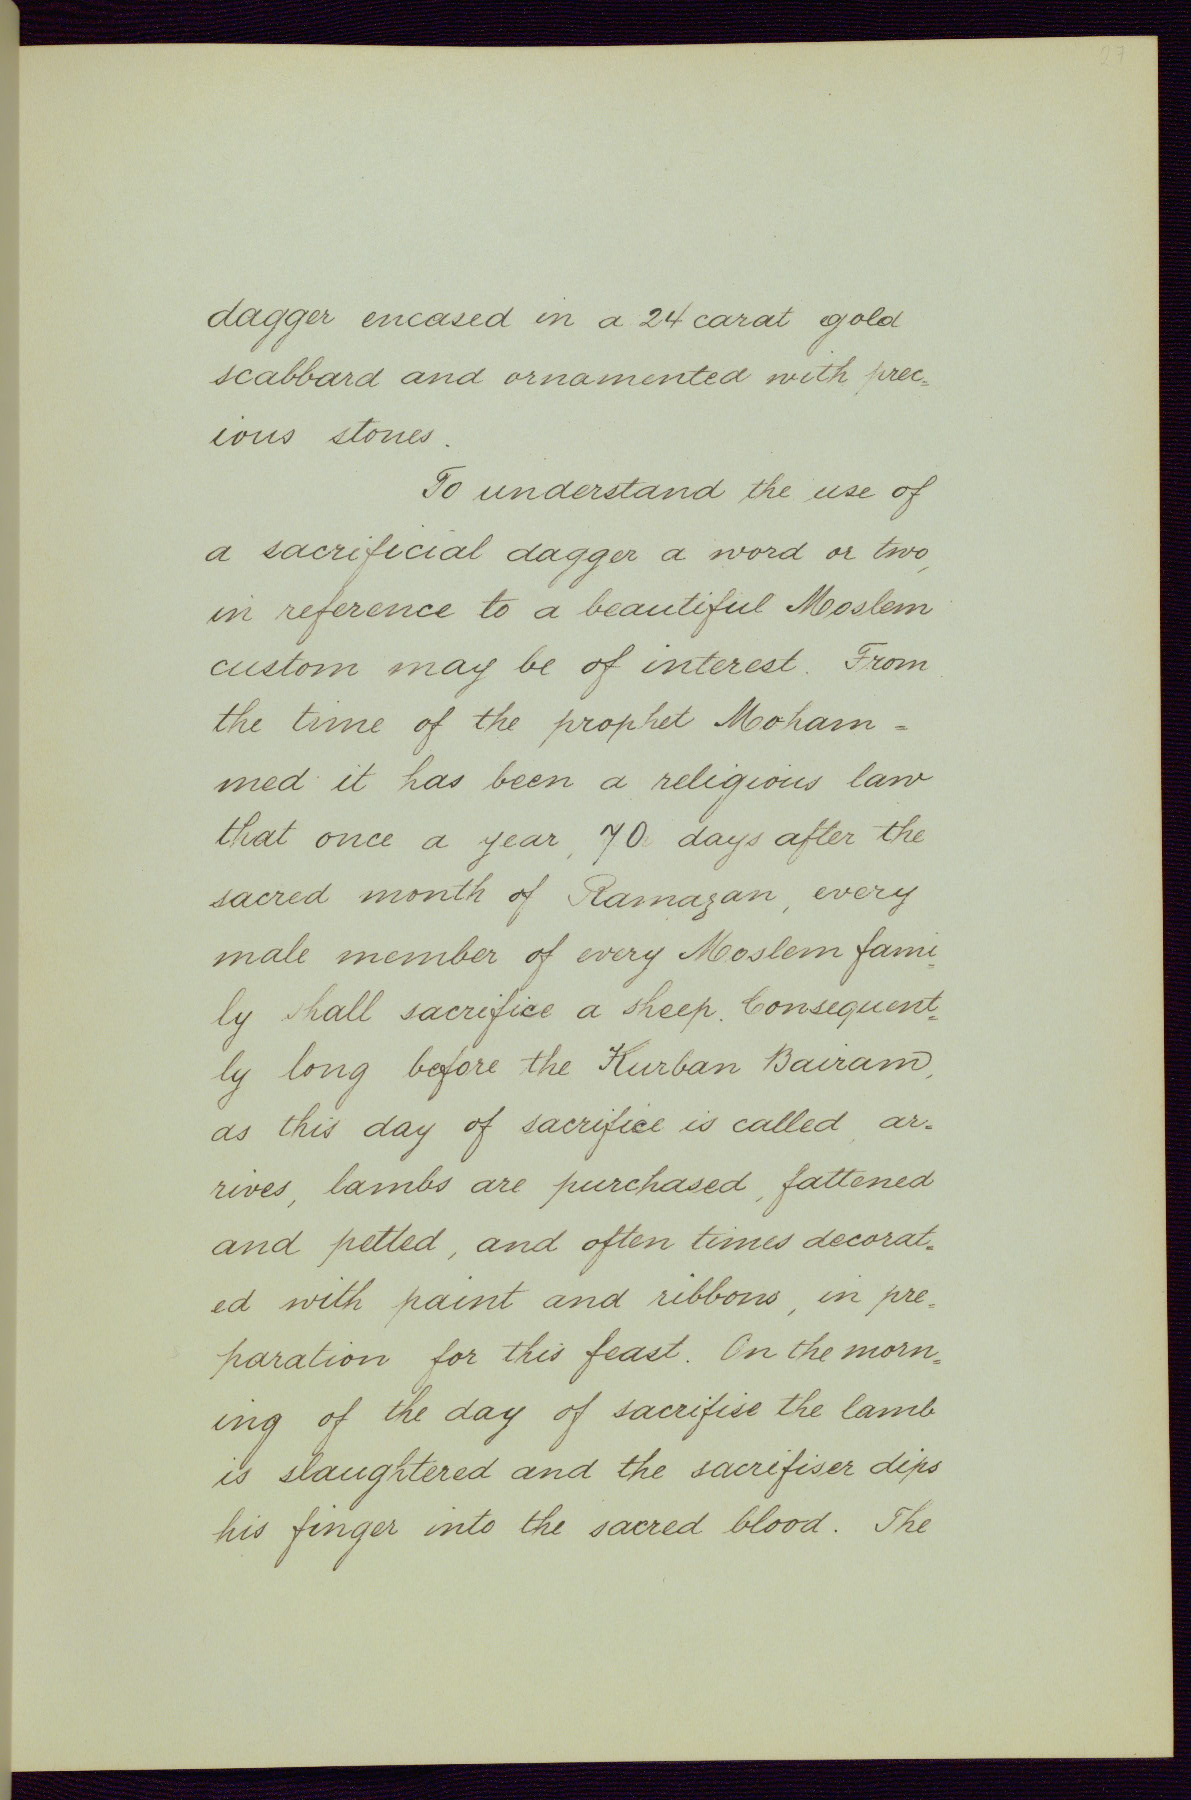 27
dagger encased in a 24 carat gold
scabbard and ornamented with prec=
ious stones.
To understand the use of
a sacrificial dagger a word or two,
in reference to a beautiful Moslem
custom may be of interest. From
the time of the prophet Moham=
med it has been a religious law
that once a year, 70 days after the
sacred month of Ramazan, every
male member of every Moslem fami=
ly shall sacrifice a sheep. Consequent=
ly long before the Kurban Bairam,
as this day of sacrifice is called, ar=
rives, lambs are purchased, fattened
and petted, and often times decorat=
ed with paint and ribbons, in pre=
paration for this feast. On the morn=
ing of the day of sacrifise the lamb
is slaughtered and the sacrifiser dips
his finger into the sacred blood. The